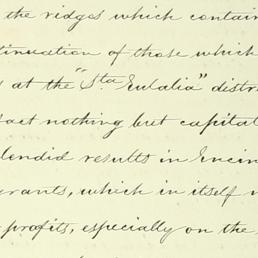 the ridges which contain
tinuation of those which
at the "Sta Eulalia" distr
act nothing but capital
lendid results in Encin
grants, which in itself
profits, especially on the